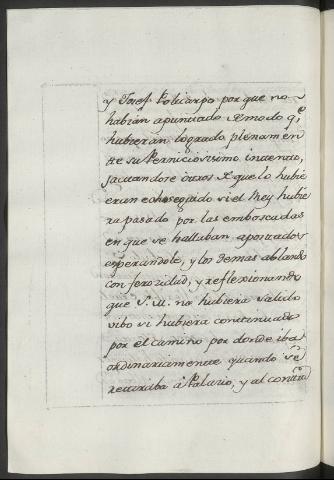 y Josef Policarpo por que no
habian apuntado de modo q.e
hubieran logrado plenamen
te su Perniciosisimo intento,
jactandose otros de que lo hubie
eran conseguido si el Rey hubie
ra pasado por las emboscadas
en que se hallaban apostados
esperandole, y los demas ablando
con ferozidad, y reflexionando
que S. M. no habiera salido
vibo si hubiera continuado
por el camino por donde iba
ordinariamente quando se
retiraba á Palacio, y al contr.o